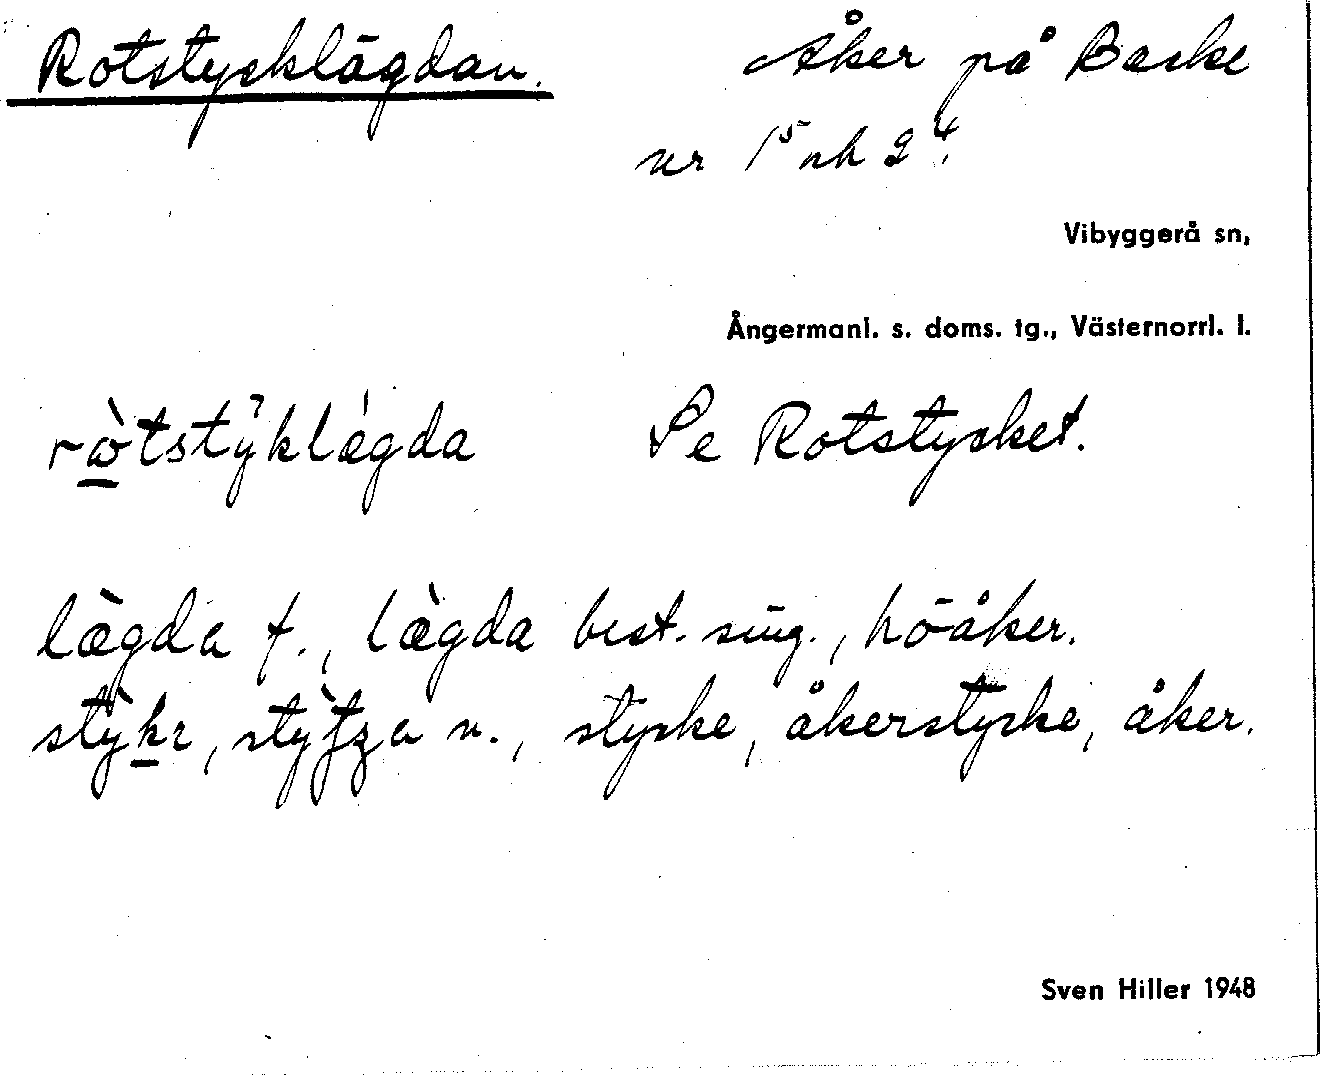 Rotstycklägdan. Åker på Backe
nr 1⁵ och 2⁴.
Vibyggerå sn,
Ångermanl. s. doms. tg., Västernorrl. l.
rὼtstýklǽgda Se Rotstycket.
lægda f., lægda best. sing., höåker.
stycke, åkerstycke, åker.
Sven Hiller 1948